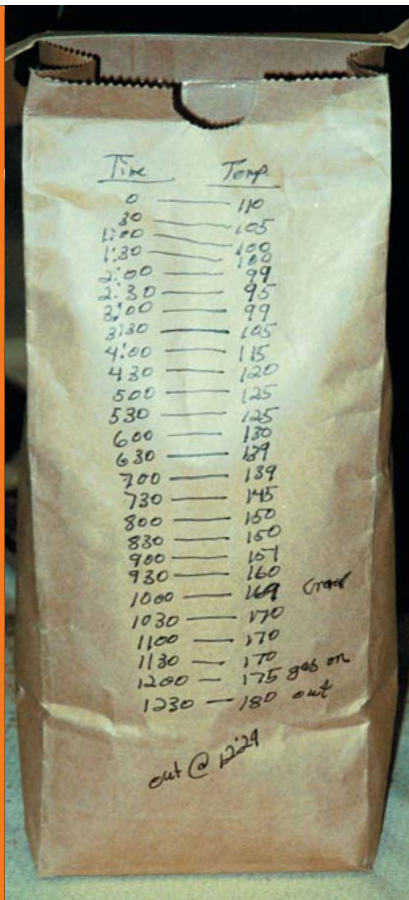 Time Temp.
0 — 110
30 — 105
1:00 — 100
1:30 — 100
2:00 — 99
2:30 — 95
3:00 — 99
3:30 — 105
4:00 — 115
430 — 120
500 — 125
530 — 125
600 — 130
630 — 139
700 — 139
730 — 145
800 — 150
830 — 150
900 — 157
930 — 160
1000 — 169
1030 — 170
1100 — 170
1130 — 170
1200 — 175 gas on
1230 — 180 out
out @ 12:29